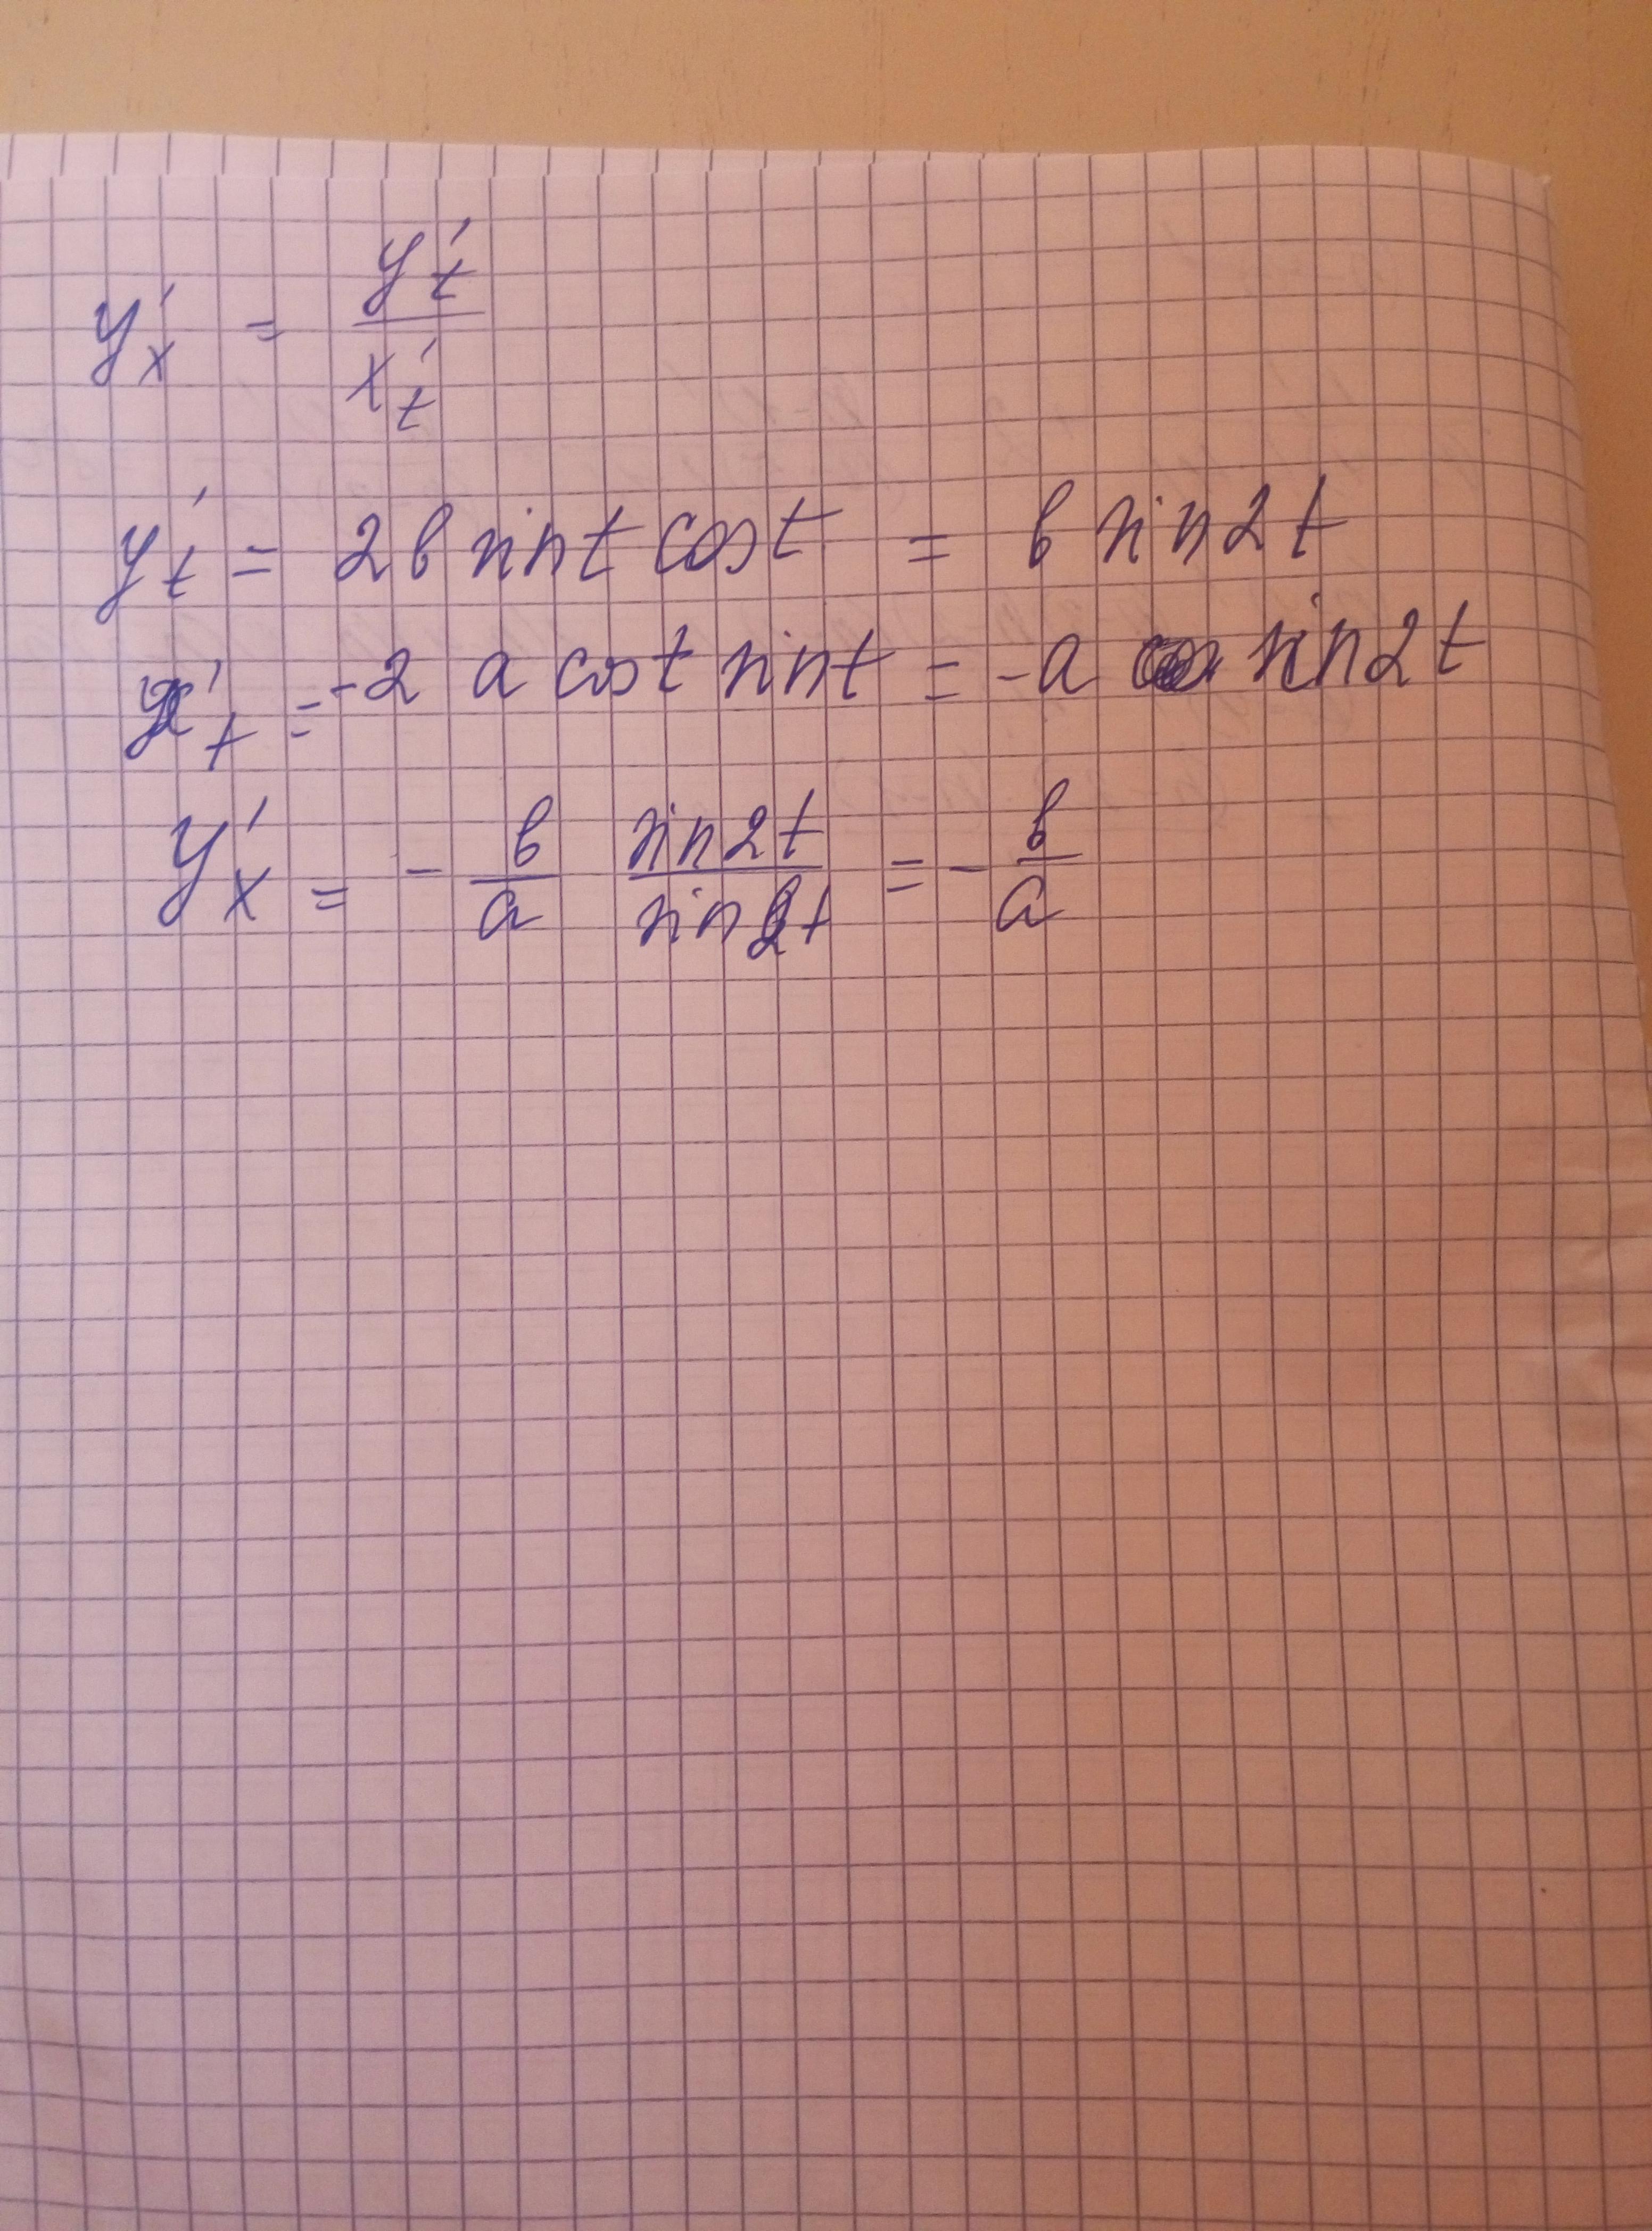 y'ₓ = y'ₜ / x'ₜ
y'ₜ = 2b sin t cos t = b sin 2t
x'ₜ = -2 a cos t sin t = -a sin 2t
y'ₓ = - b/a sin 2t / sin 2t = - b/a